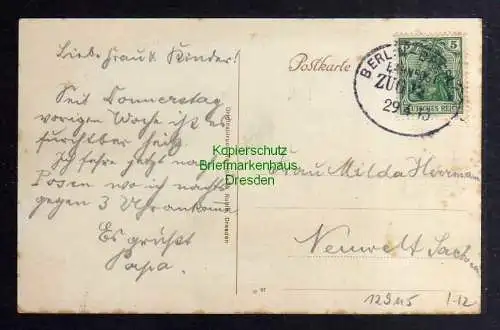 Liebe Frau & Kinder!
Seit Donnerstag
vorigen Woche ist es
furchtbar heiß
Ich fahre jetzt nach
Posen wo ich nachts
gegen 3 Uhr ankomme
Es grüßt
Papa.
Postkarte
5
DEUTSCHES REICH
BERL
ZUG
29
Kopierschutz
Briefmarkenhaus
Dresden
Frau Milda Herrmann
Neuwelt Sachsen
Dresden
12945 1-12